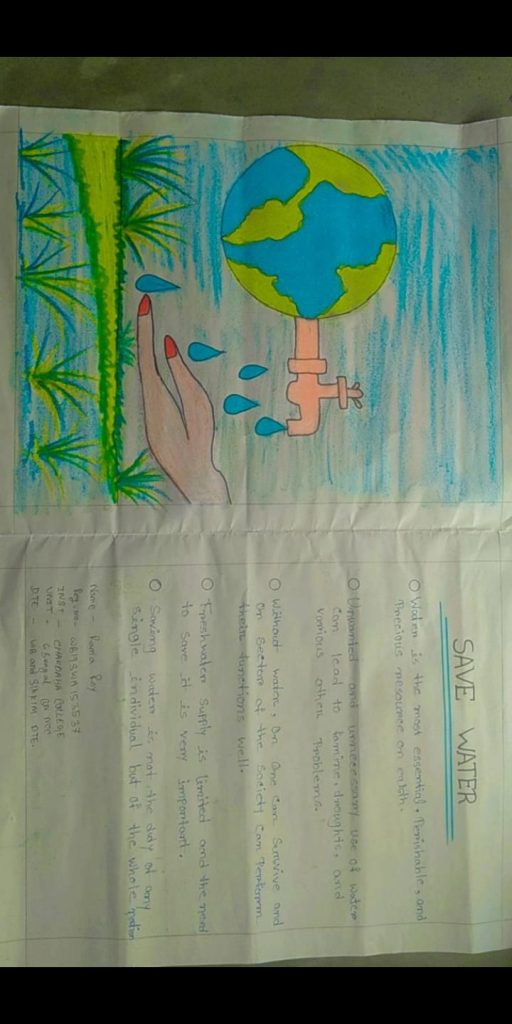 SAVE WATER
○ Water is the most essential, Perishable, and
Precious resource on earth.
○ Unwanted and unnecessary use of water
can lead to famine, droughts, and
various other Problems.
○ Without water, on one can Survive and
on sector of the society can Perform
their functions well.
○ Freshwater supply is limited and the need
to save it is very important.
○ Saving water is not the duty of any
single individual but of the whole nation
Name - Roy
Regi no -
INST - CHAKDAHA COLLEGE
UNIT - 6 Bengal BN NCC
DTE - WB and SIKKIM DTE.